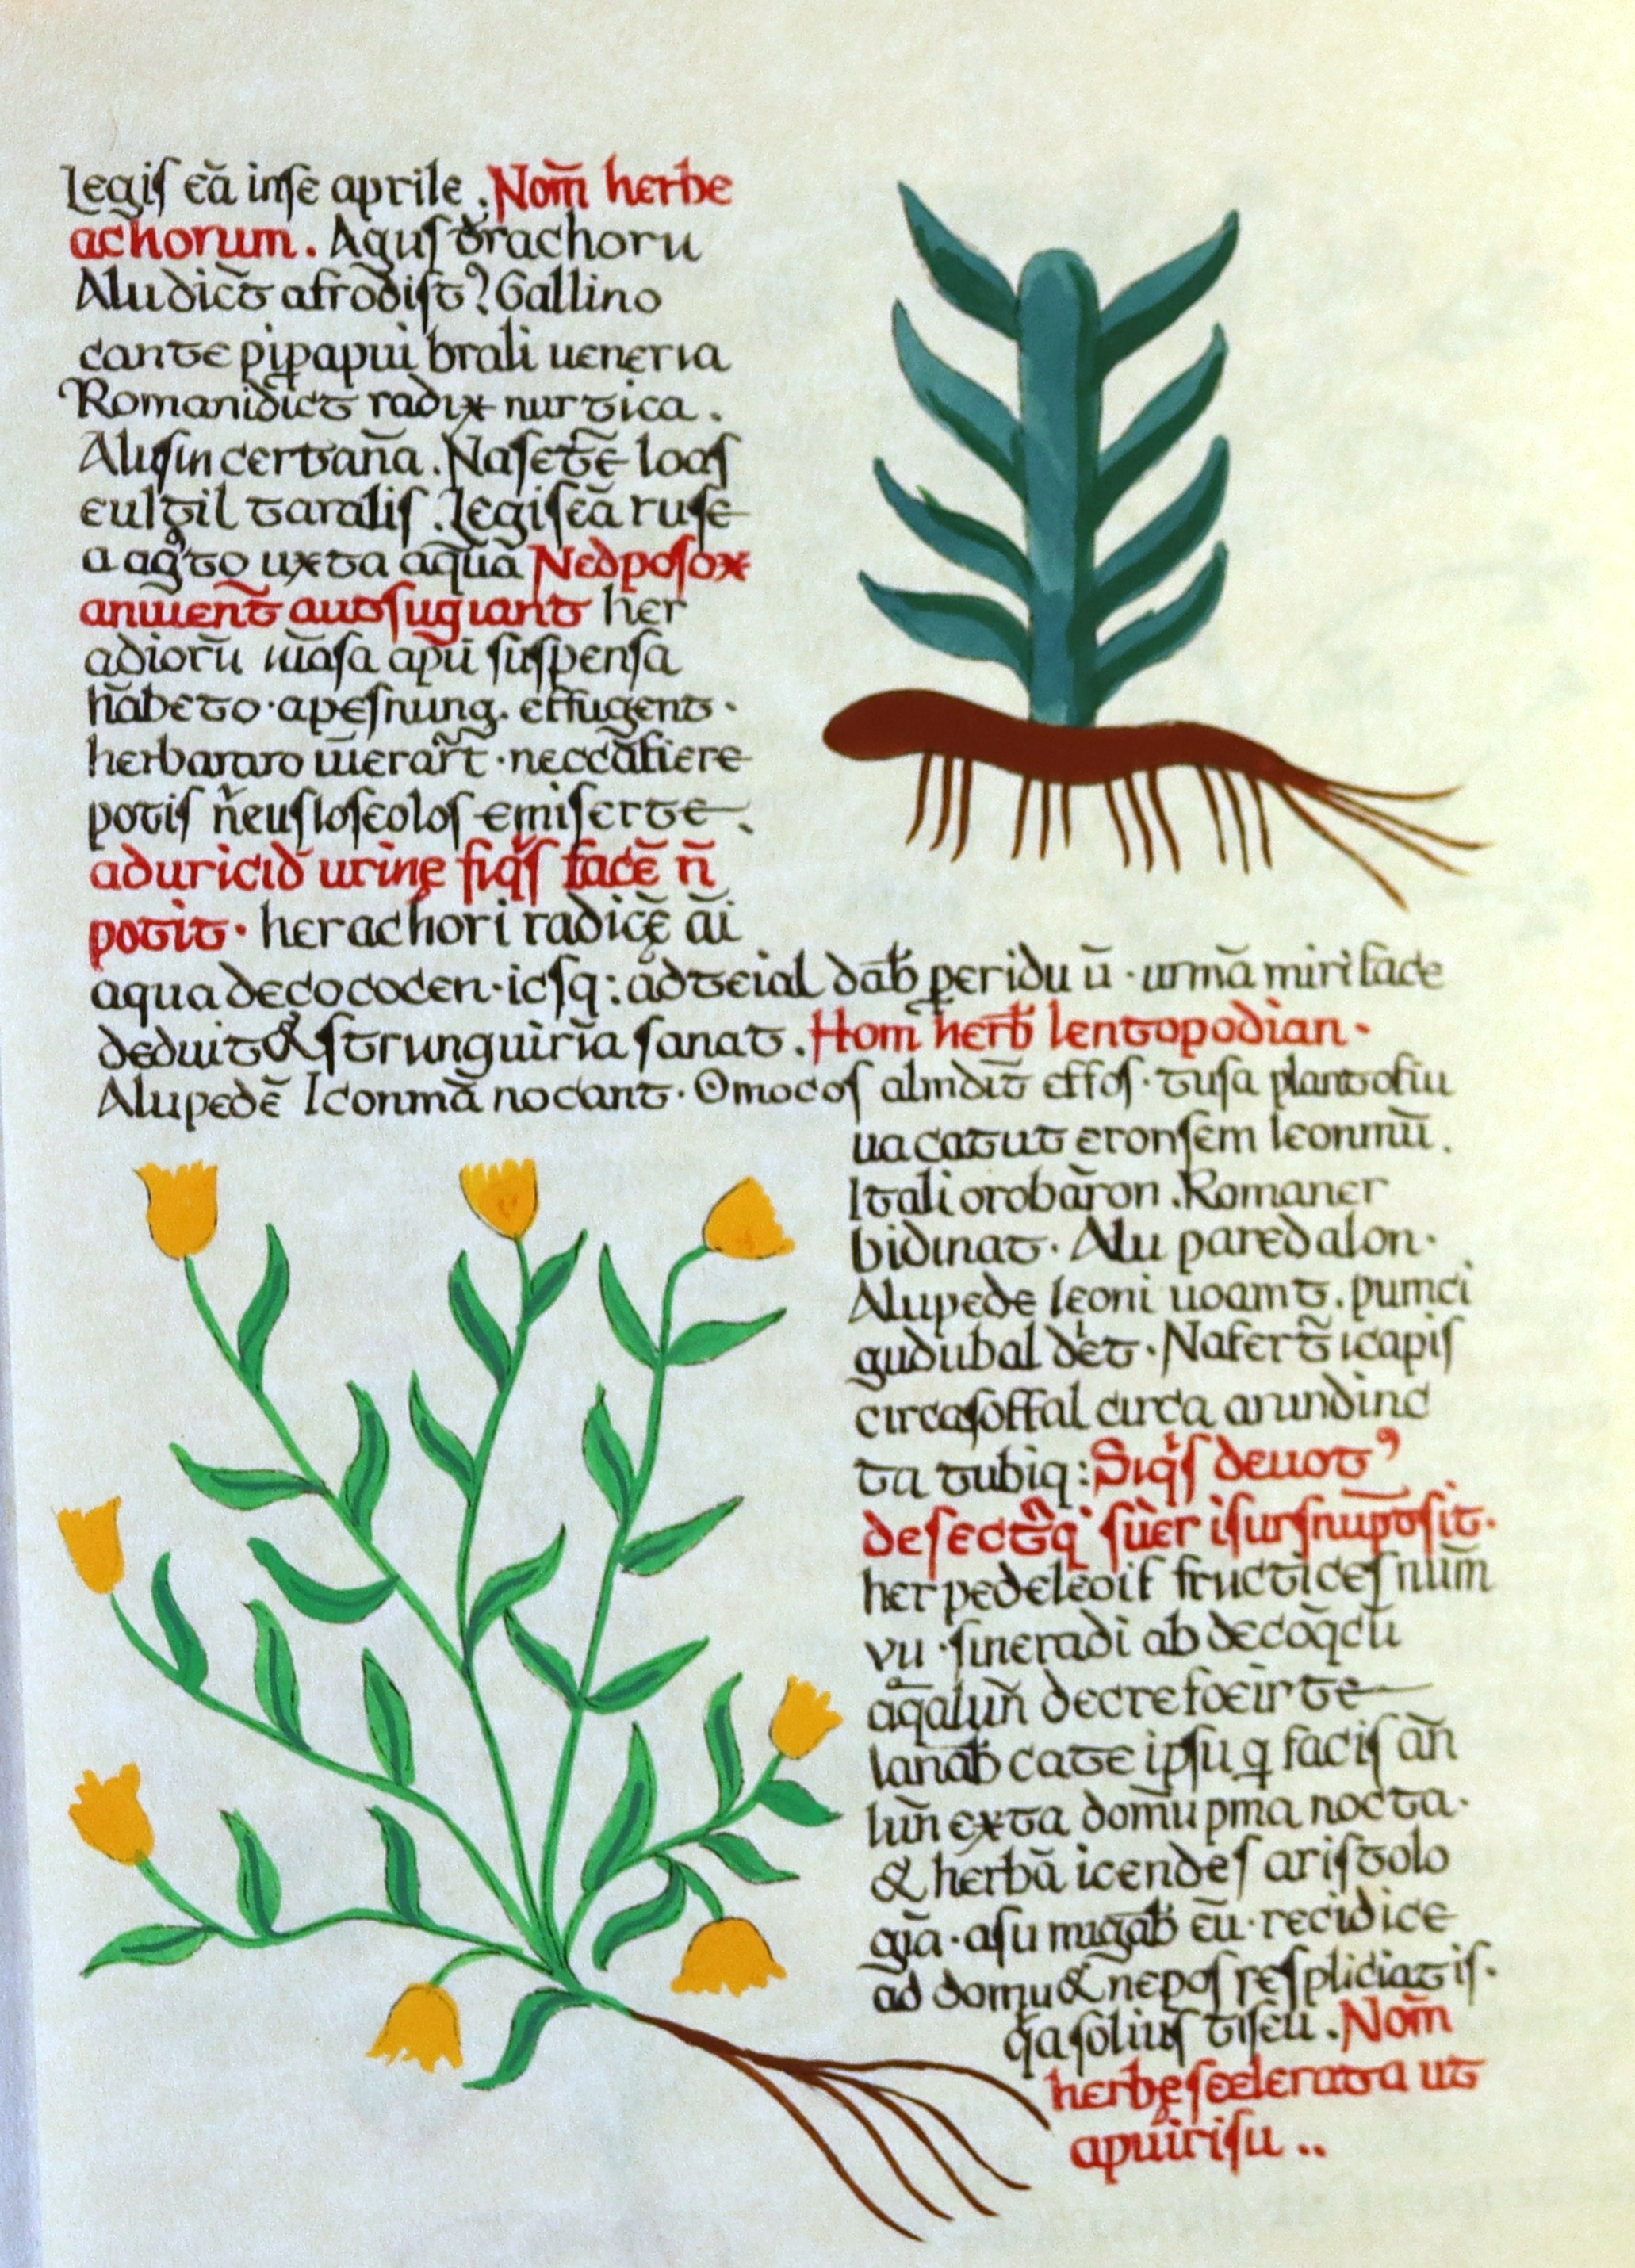 Legis eā inse aprile. Nom̄ herbe
achorum. Agus drachoru
Alu dic̄t afrodist? Gallino
cante pipapui brali ueneria
Romani dict radix nurtica.
Alusin certan̄a. Naset̄e loas
eulgil taralis. Legis eā ruse
a ag to uxta aquā Ned posox
aniuent aut fugiant her
adiorū iuāsa apū suspensa
hābeto · apes nung. effugent ·
herbararo iuerar̄t · nec cātiere
potis n̄ eus loseolos emiserte.
ad uricid urinę siqs facē n̄
potit · her achori radicę̄ āi
aqua deco cocen · icsq: ad teial dab̄ peridu ū · urmā miri face
deduit & strunguirīa sanat. Hom̄ herb̄ lentopodian ·
Alu pedē Iconmā nocant · Omocos almdit̄ effos · tusa plantofiu
ua catut eronsem leonmū.
Itali orobāron. Romaner
bidinat · Alu paredalon ·
Alu pede leoni uoamt. pumci
gudubal det · Nafert̄ icapis
circa soffal circa arundinc
ta tubiq: Siqs deuot⁹
desect̄q suer isursnup̄osit ·
her pede leoif fructices num̄
vu · sine radi ab decoq̄cū
aqalun̄ decrefoeirte
lanab̄ cate ipsu q facis ān
lun̄ exta dom̄u pma nocta ·
& herbā icendes aristolo
gīa · asu migab̄ eū · recidice
ad domu & nepos respliciat is ·
qa solius tiseu. Nom̄
herbę scelerata ut
apuirisu ..